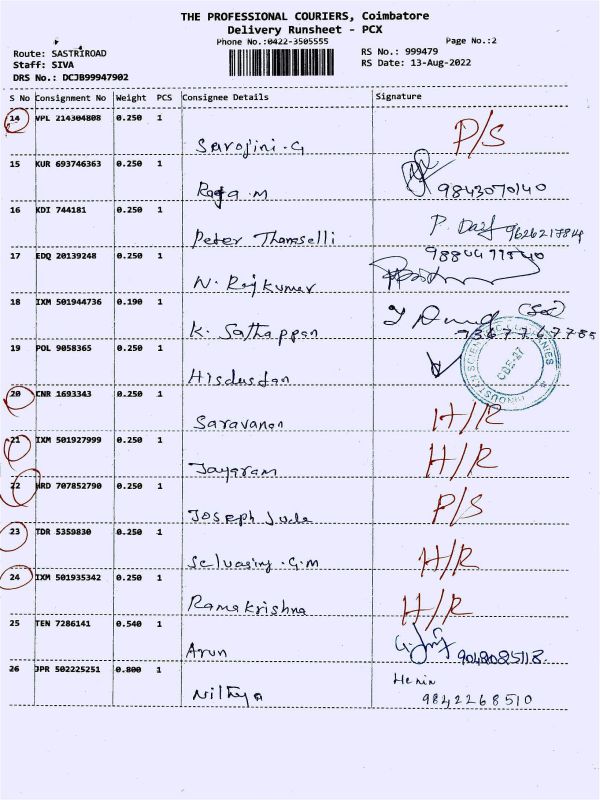 THE PROFESSIONAL COURIERS, Coimbatore
Delivery Runsheet - PCX
Phone No.:0422-3505555 Page No.:2
Route: SASTRIROAD RS No.: 999479
Staff: SIVA RS Date: 13-Aug-2022
DRS No.: DCJB99947902
S No Consignment No Weight PCS Consignee Details Signature
14 VPL 214304808 0.250 1 P/S
Sarojini.G
15 KUR 693746363 0.250 1
Raja.M 9843070140
16 KDI 744181 0.250 1
Peter Thanaselli 9626217844
17 EDQ 20139248 0.250 1
N. Rajkumar
18 IXM 501944736 0.190 1
K. Sathappan
19 POL 9058365 0.250 1
Hindustan
20 CNR 1693343 0.250 1 H/R
Saravanan
21 IXM 501927999 0.250 1 H/R
Jayaram
22 HRD 707852790 0.250 1 P/S
Joseph Jude
23 TDR 5359830 0.250 1 H/R
Selvasing.G.M
24 IXM 501935342 0.250 1 H/R
Ramakrishna
25 TEN 7286141 0.540 1
Arun 9048085118
26 JPR 502225251 0.800 1 Henin
Nithya 9842268510